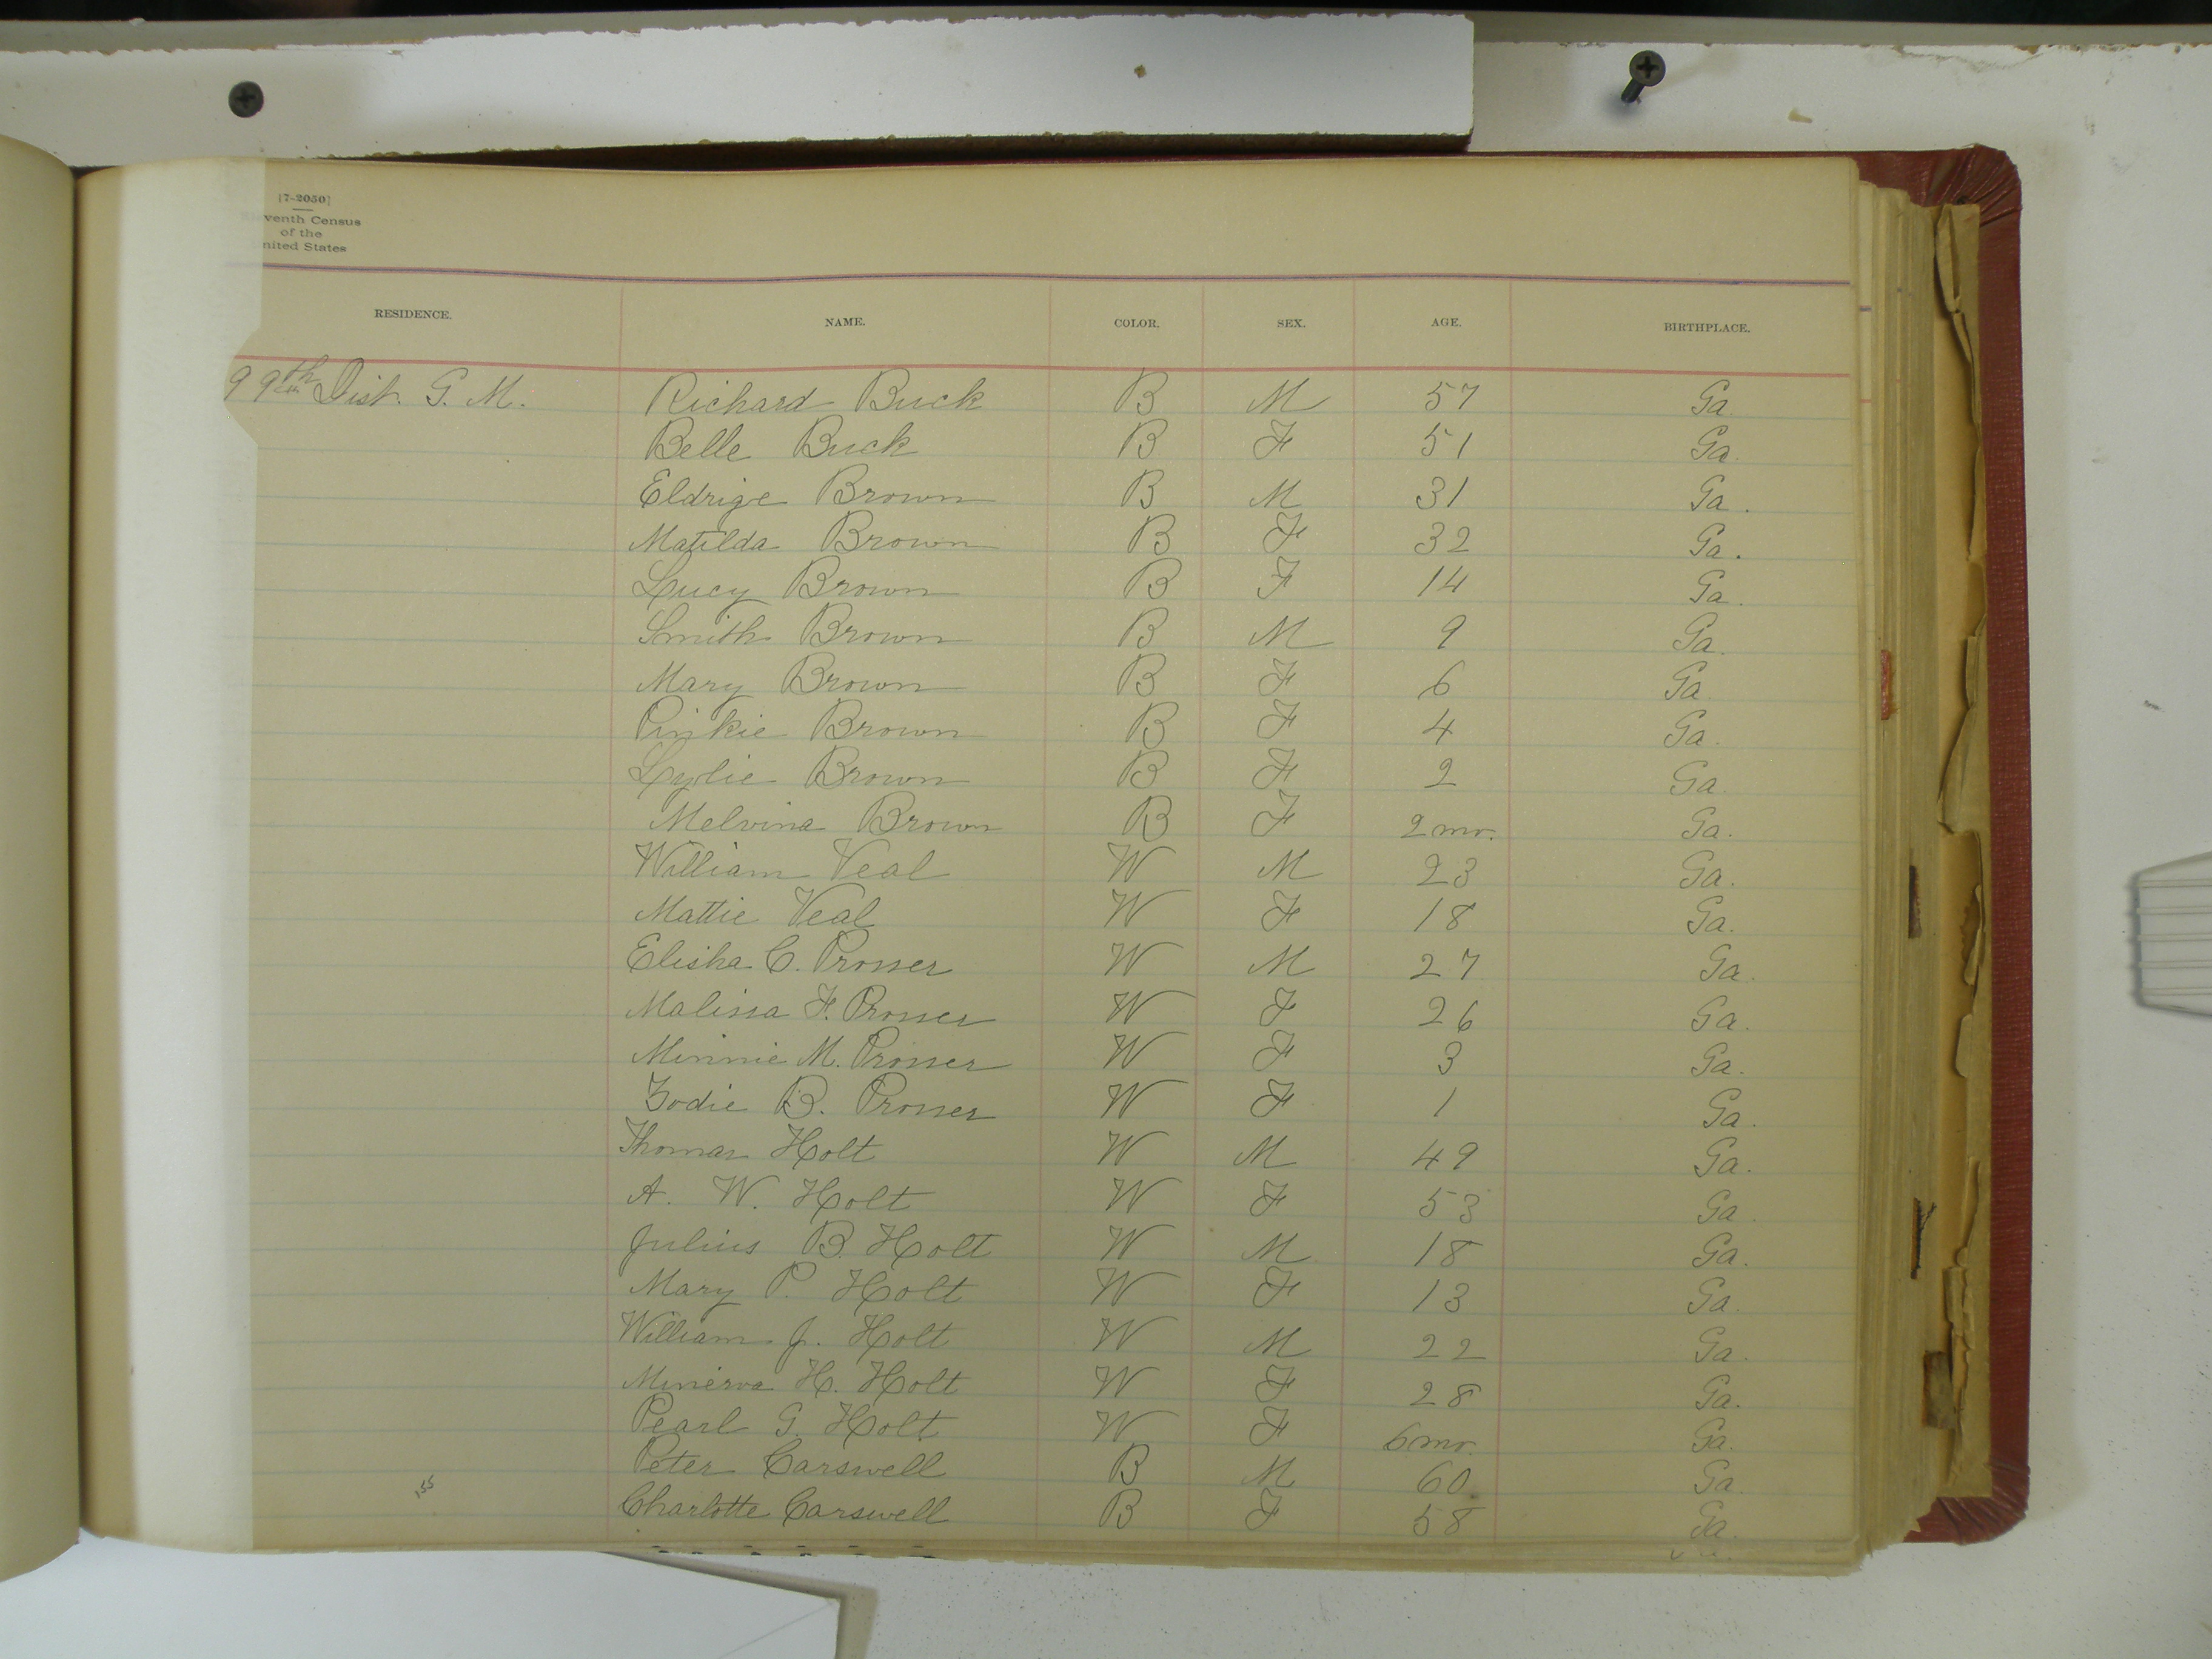 [7-2050]
venth Census
of the
nited States
RESIDENCE. NAME. COLOR. SEX. AGE. BIRTHPLACE.
99th Dist. G. M. Richard Buck B M 57 Ga
Belle Buck B F 51 Ga.
Eldrige Brown B M 31 Ga.
Matilda Brown B F 32 Ga.
Lucy Brown B F 14 Ga.
Smith Brown B M 9 Ga.
Mary Brown B F 6 Ga.
Pinkie Brown B F 4 Ga.
Lylie Brown B F 2 Ga.
Melvina Brown B F 2 mo. Ga.
William Veal W M 23 Ga.
Mattie Veal W F 18 Ga.
Elisha C. Prosser W M 27 Ga.
Malissa F. Prosser W F 26 Ga.
Minnie M. Prosser W F 3 Ga.
Zodie B. Prosser W F 1 Ga.
Thomas Holt W M 49 Ga.
A. W. Holt W F 53 Ga.
Julius B. Holt W M 18 Ga.
Mary P. Holt W F 13 Ga.
William J. Holt W M 22 Ga.
Minerva H. Holt W F 28 Ga.
Pearl G. Holt W F 6 mo. Ga.
Peter Carswell B M 60 Ga.
Charlotte Carswell B F 58 Ga.